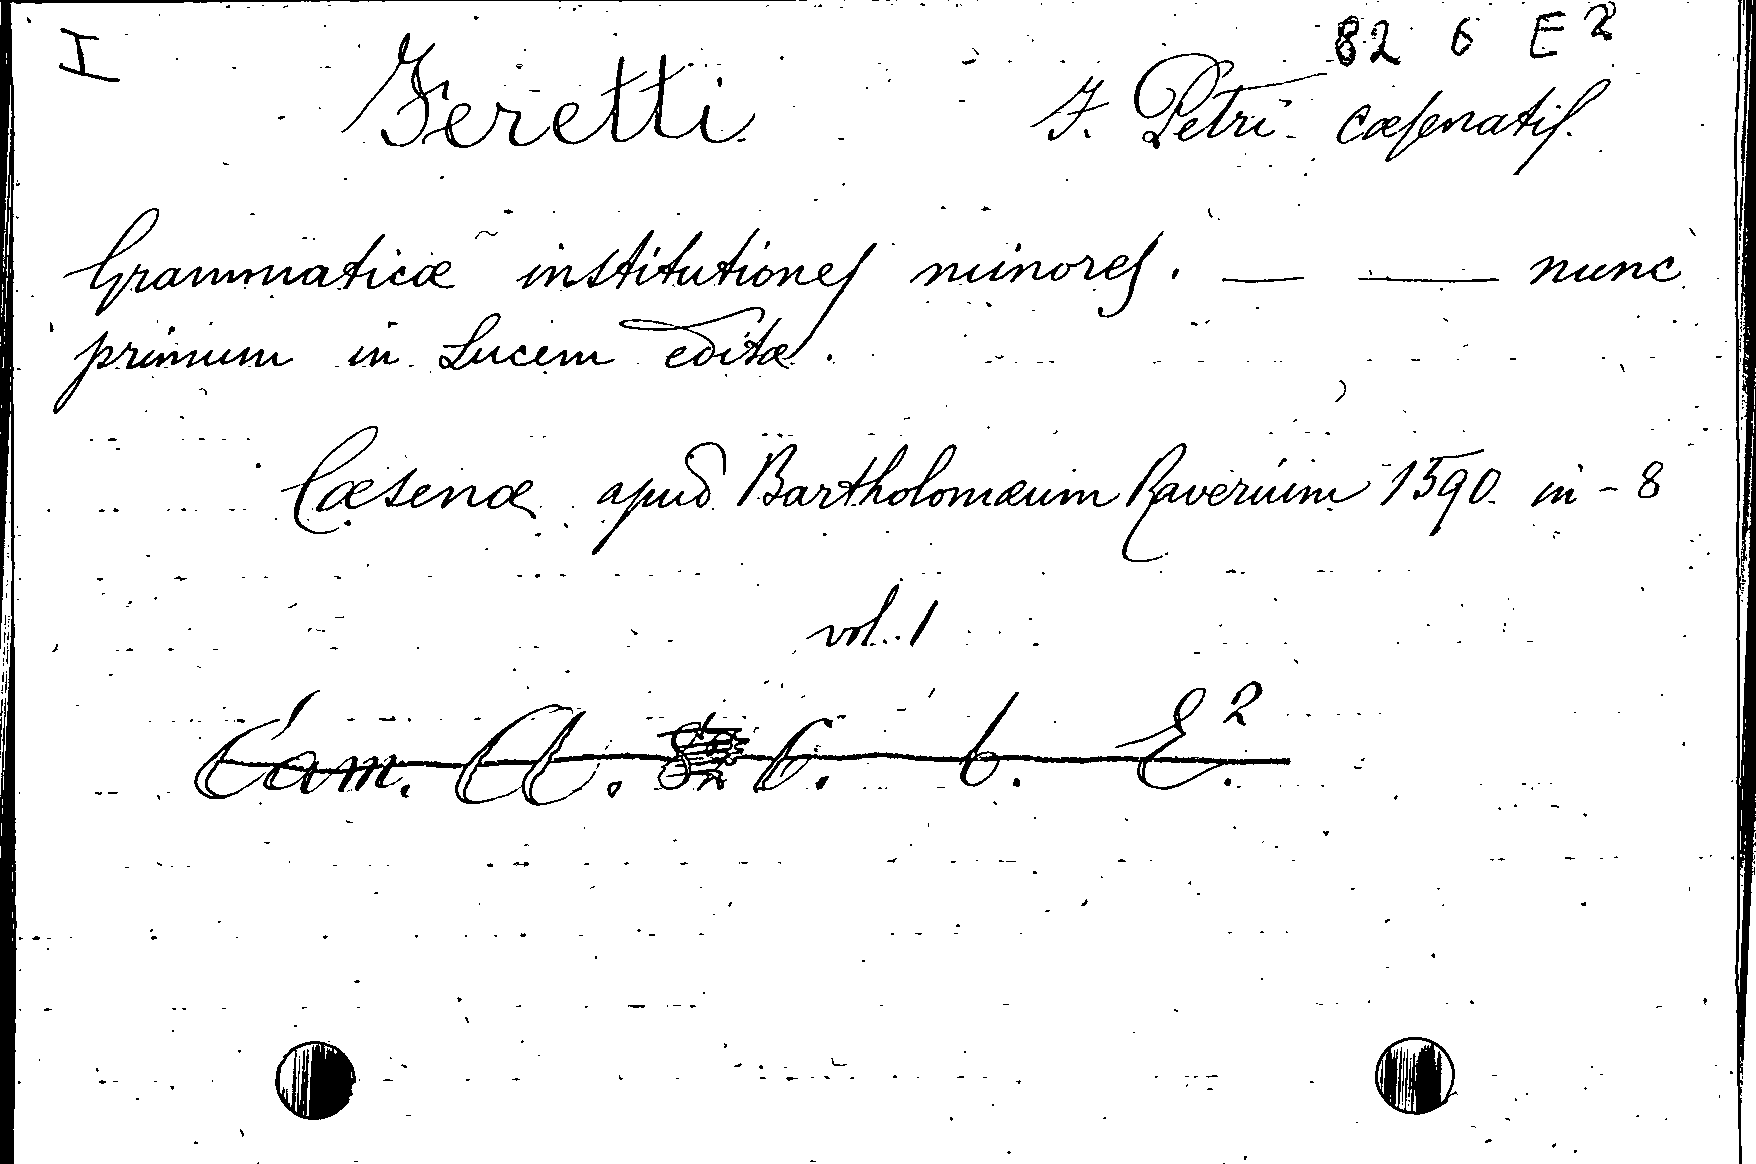 I 82 6 E 2
Feretti J. Petri cæsenatis.
Grammaticæ institutiones minores. — — nunc
primum in lucem editæ.
Cæsenæ apud Bartholomæum Raverium 1590 in-8
vol. 1
Cam. A. C. 6. E.2